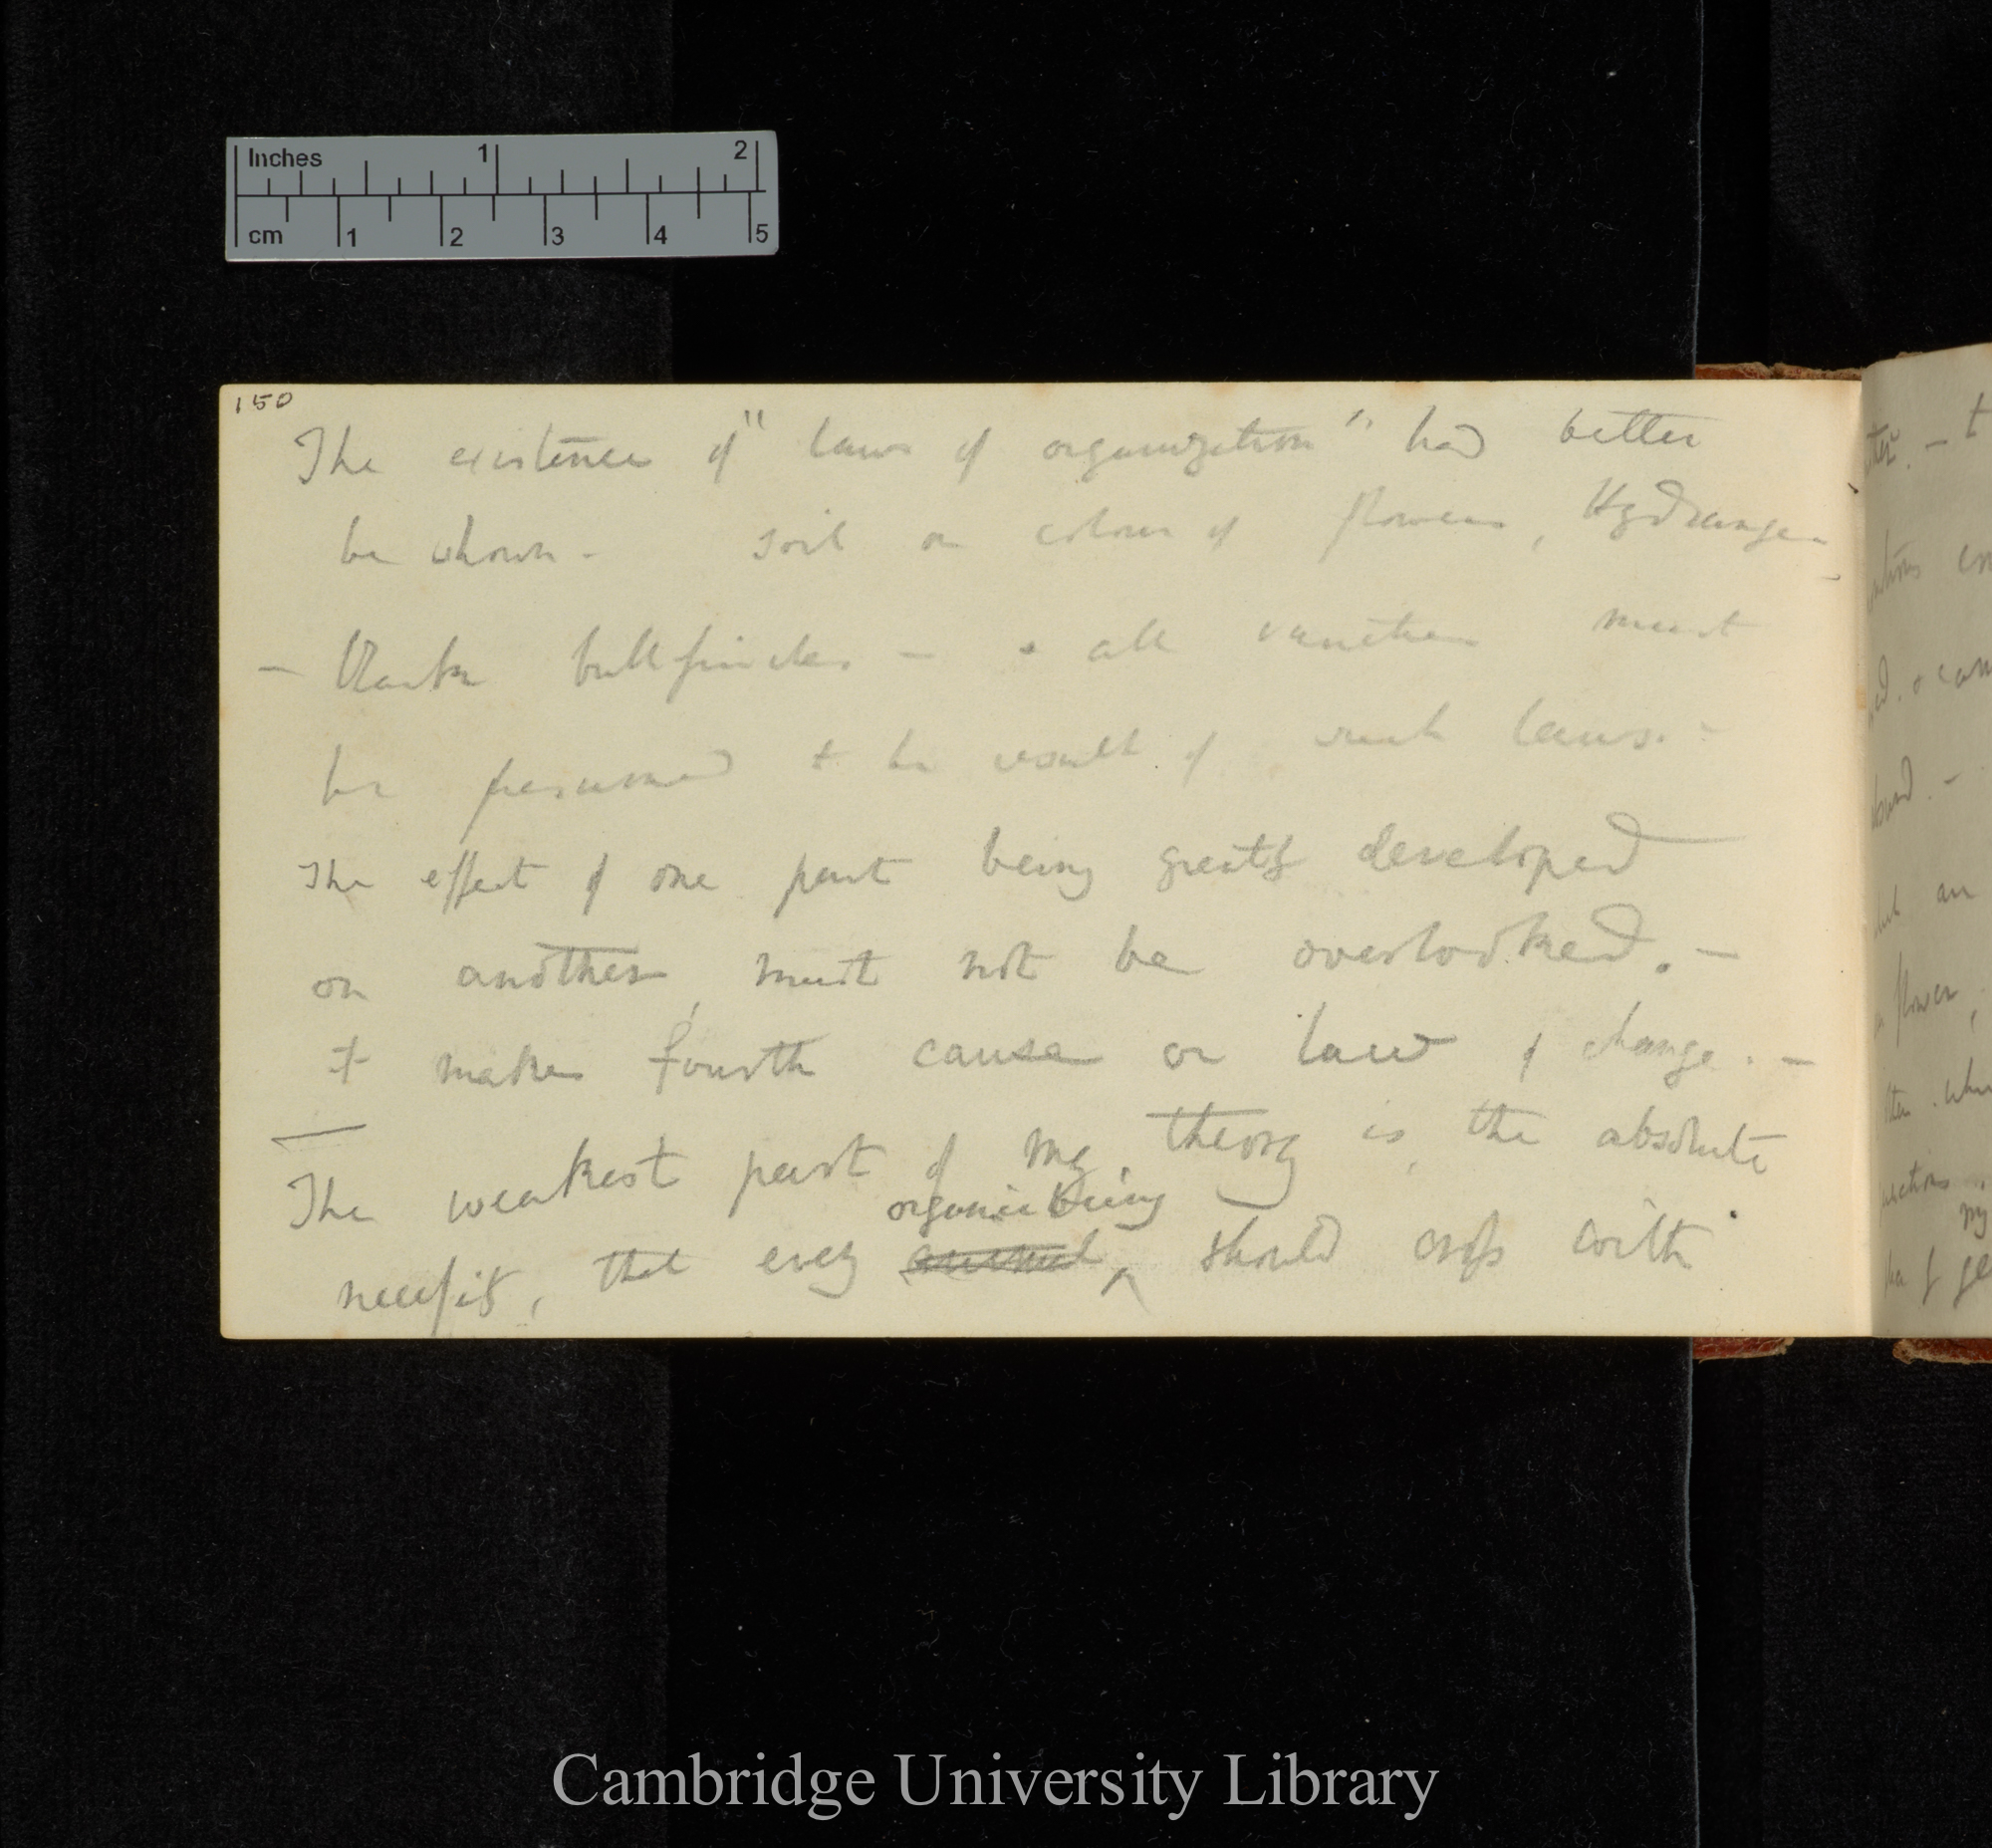 Inches 1 2
cm 1 2 3 4 5
150
The existence of "laws of organization" had better
be shown - soil on colour of flowers, Hydrangea
- black bullfinches - & all varieties must
be presumed to be result of such laws. -
The effect of one part being greatly developed
on another must not be overlooked. -
it makes fourth cause or law of change. -
The weakest part of my theory is, the absolute
organic being
necessity, that every animal ^ should cross with
Cambridge University Library